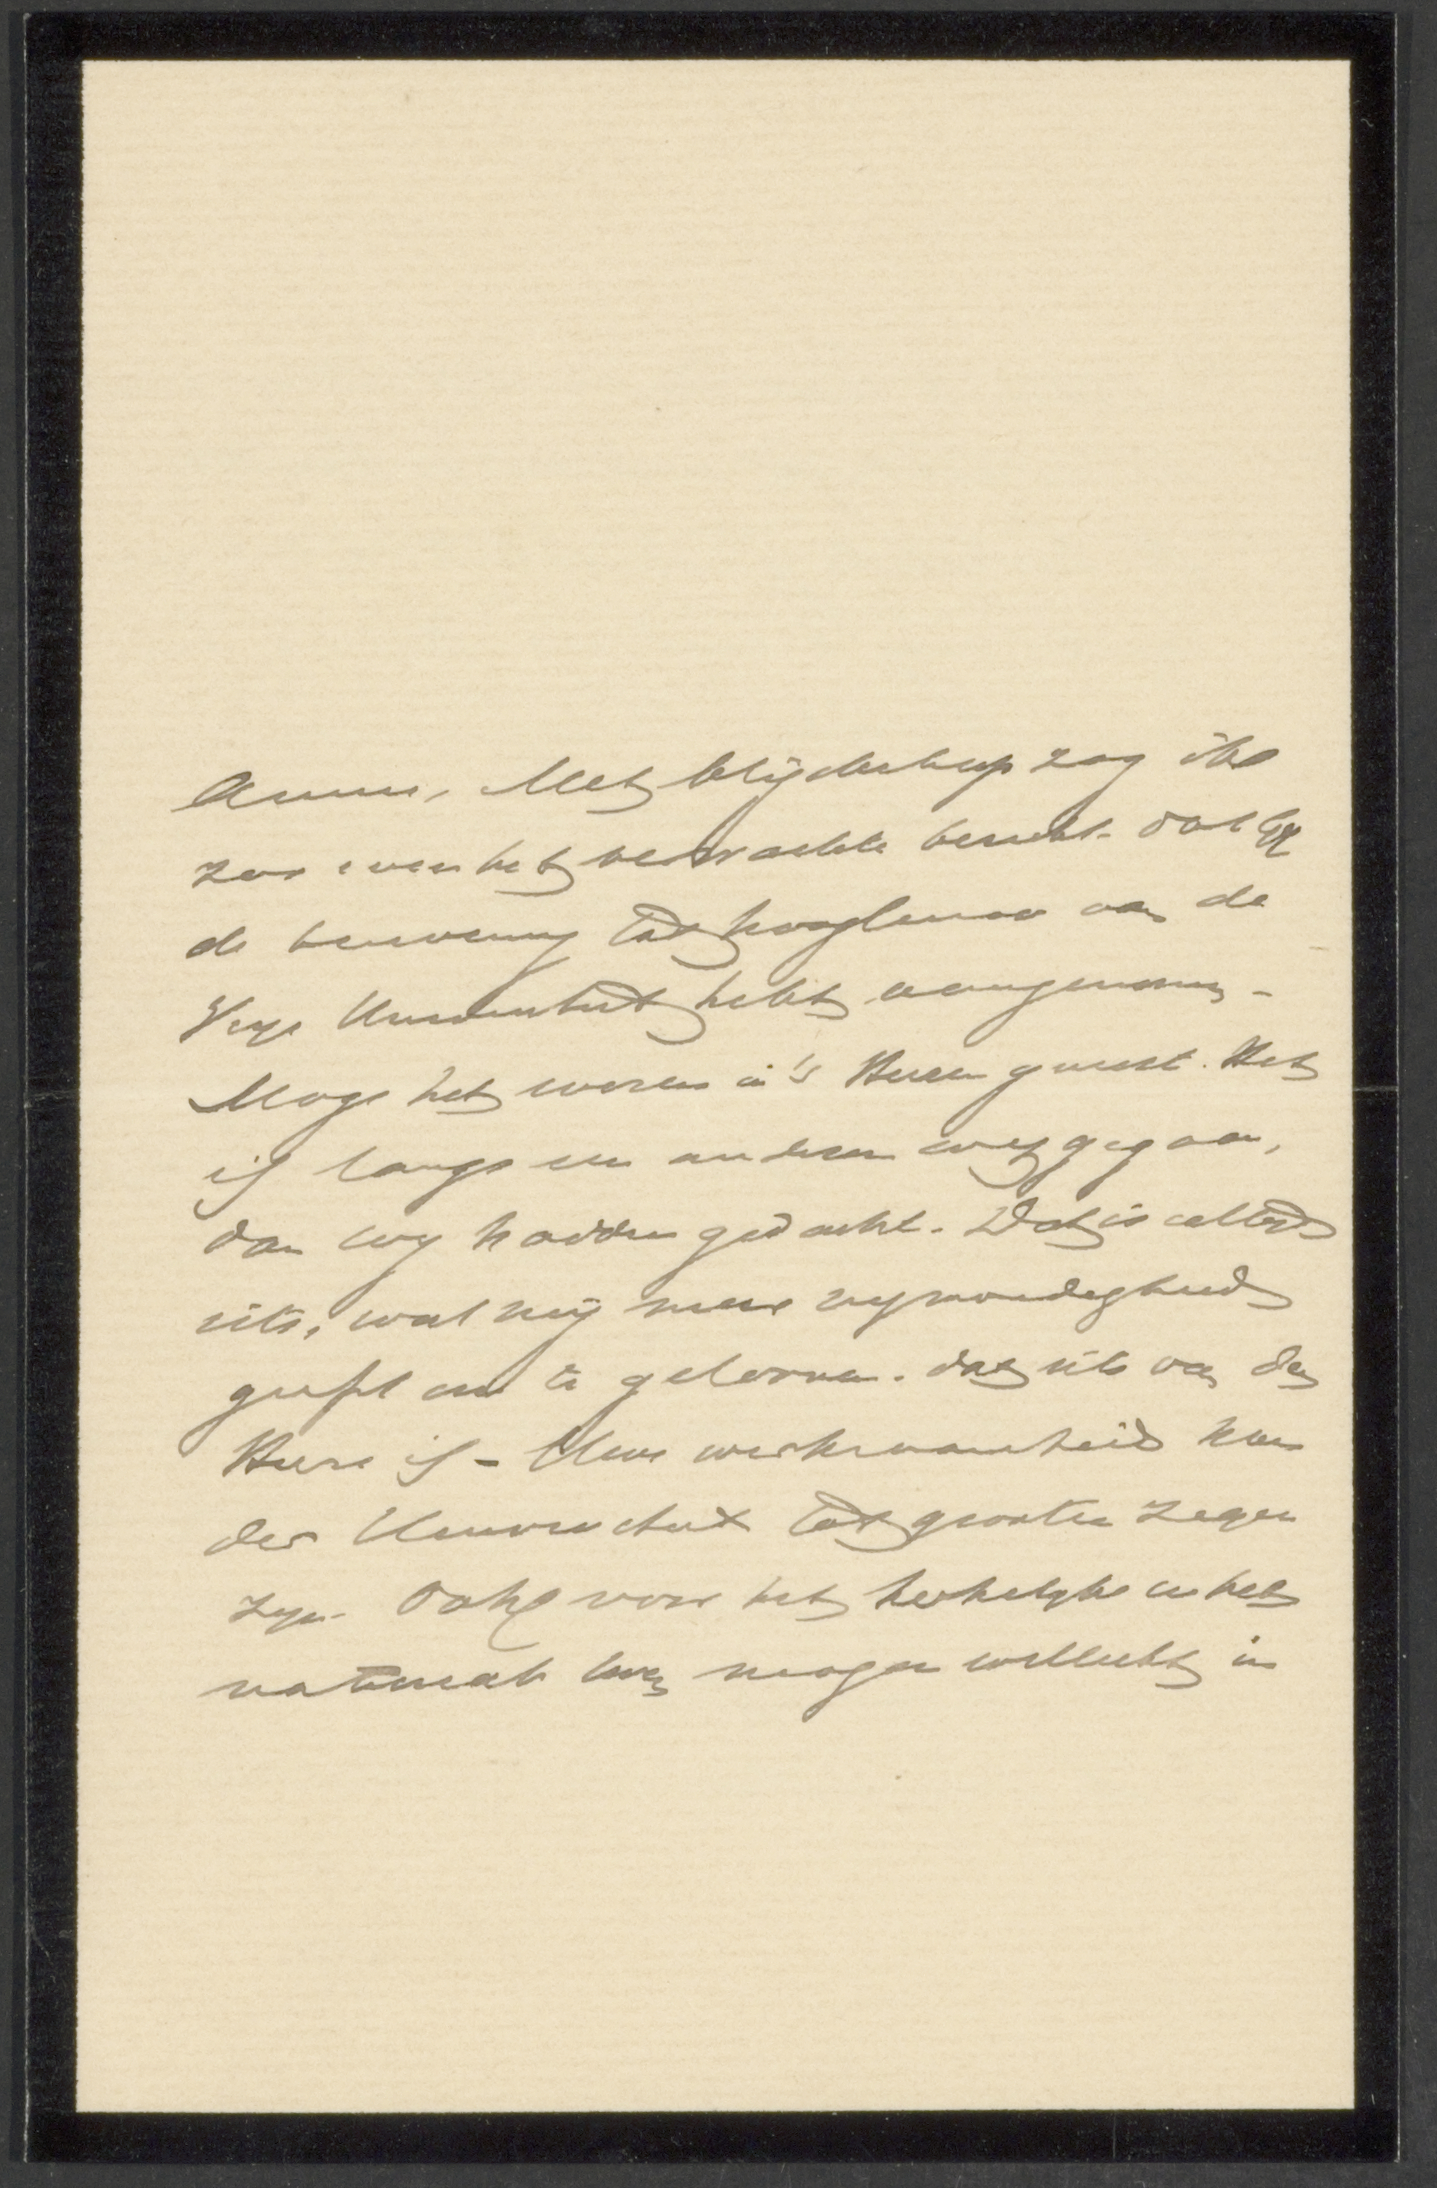 Amice, Met blijdschap zag ik
zoo even het verwachte bericht dat gij
de benoeming tot hoogleeraar aan de
Vrije Universiteit hebt aangenomen -
Moge het wezen in 's Heeren gunst. Het
is langs een anderen weg gegaan,
dan wij hadden gedacht. Dat is altijd
iets, wat mij meer vrijmoedigheid
geeft om te gelooven. dat iets van den
Heere is - Uwe werkzaamheid kan
der Universiteit tot grooten zegen
zijn. Ook voor het kerkelijke en het
nationale leven mogen wellicht in